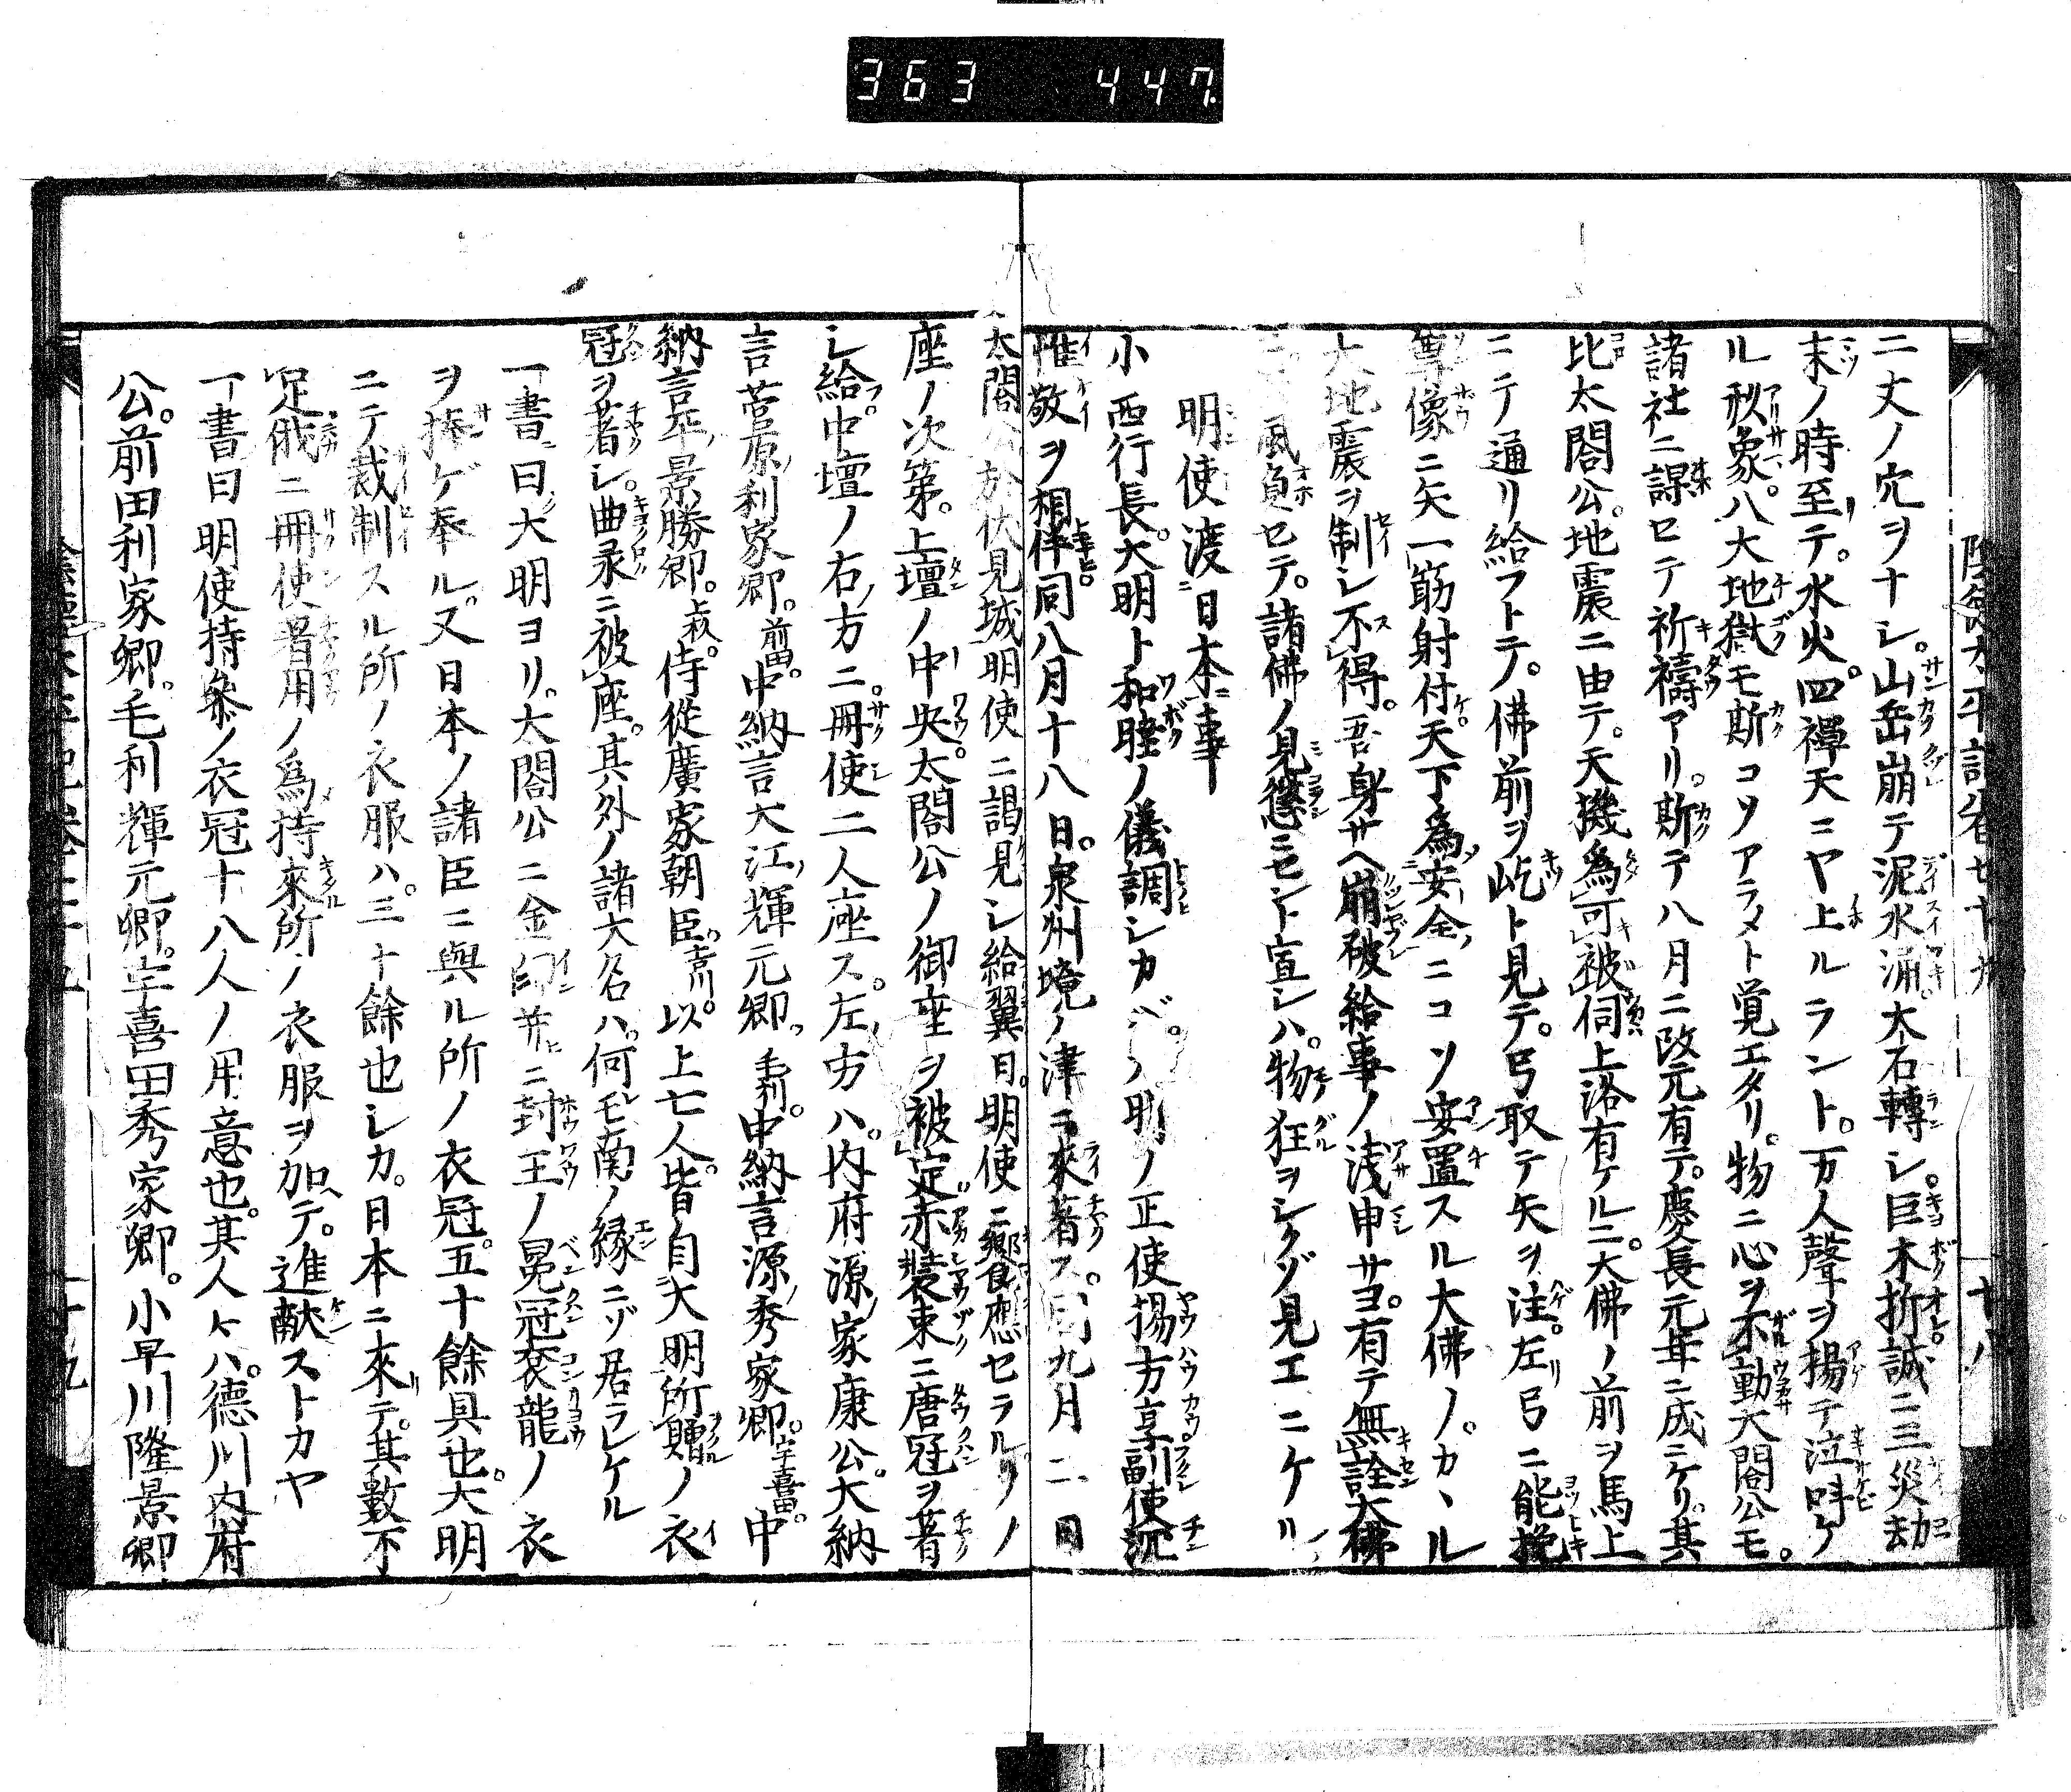 363 447.
陰徳太平記巻七十九
十八
二丈ノ穴ヲナシ。山岳崩テ泥水涌。大石轉シ。巨木折誠ニ三災劫
末ノ時至テ。水火。四禪天ニヤ上ルラント。万人聲ヲ揚テ泣叫ケ
ル秋象。八大地獄モ斯コソアラメト覚エタリ。物ニ心ヲ不動大閤公モ。
諸社ニ課セテ祈禱アリ。斯テ八月ニ改元有テ。慶長元年ニ成ニケリ。其
比太閤公。地震ニ由テ。天機為可被伺上洛有ケルニ。大佛ノ前ヲ馬上
ニテ通リ給フトテ。佛前ヲ屹ト見テ。弓取テ矢ヲ注。左リ弓ニ能挽
尊像ニ矢一筋射付。天下為安全ニコソ安置スル大佛ノ。カヽル
大地震ヲ制シ不得。吾身サヘ崩破給事ノ淺申サヨ。有テ無詮大佛
風負セテ。諸佛ノ見懲ミセント宣シハ。物狂ヲシクゾ見エニケル
明使渡日本事
小西行長。大明ト和睦ノ儀調シカバ。明ノ正使揚方亨副使沉
惟敬ヲ相伴同八月十八日。泉州境ノ津ニ來着ス。同九月二日
太閤公於伏見城明使ニ謁見シ給翼日。明使ニ饗應セラル其ノ
座ノ次第。上壇ノ中央。太閤公ノ御座ヲ被定赤裝束ニ唐冠ヲ著
シ給フ。中壇ノ右ノ方ニ。冊使二人座ス。左ノ方ハ。内府源家康公。大納
言菅原利家卿。前田。中納言大江輝元卿。毛利。中納言源秀家卿。宇喜田。中
納言平景勝卿。上杦。侍從廣家朝臣。吉川。以上七人。皆自大明所贈ノ衣
冠ヲ著シ。曲彔ニ被座。其外ノ諸大名ハ。何モ南ノ縁ニゾ居ラレケル
一書曰大明ヨリ。大閤公ニ金印并ニ封王ノ冕冠衮龍ノ衣
ヲ捧ゲ奉ル。又日本ノ諸臣ニ與ル所ノ衣冠。五十餘具也。大明
ニテ裁制スル所ノ衣服ハ。三十餘也シカ。日本ニ來テ。其數不
足俄ニ冊使着用ノ為持來所ノ衣服ヲ加テ。進献ストカヤ
一書曰明使持參ノ衣冠十八人ノ用意也。其人々ハ。德川内府
公。前田利家卿。毛利輝元卿。宇喜田秀家卿。小早川隆景卿
十九